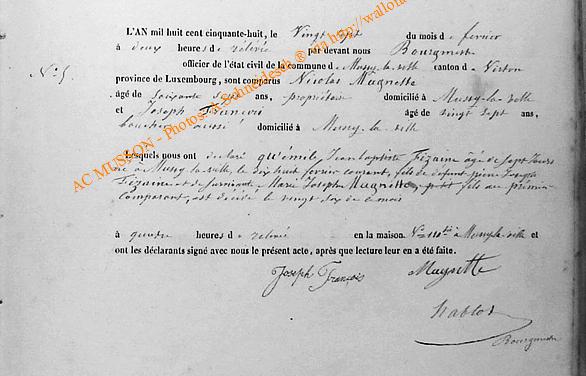 L'AN mil huit cent cinquante-huit, le Vingt sept du mois de fevrier
à deux heures de rélevée par devant nous Bourgmestre
officier de l'état civil de la commune de Mussy-la-ville canton de Virton
N.° 5.
province de Luxembourg, sont comparus Nicolas Magnette
âgé de soixante ans, propriétaire domicilié à Mussy-la-ville
et Joseph François âgé de vingt sept ans,
aussi domicilié à Mussy-la-ville
Lesquels nous ont déclaré qu'émile, Jean baptiste Fizaine âgé de sept Jours
né à Mussy-la-ville, le dix huit fevrier courant, fils de defunt pierre Joseph
Fizaine et de survivante Marie Josephe Magnette, petit fils au premier
comparant, est décédé le vingt six de ce mois
à quatre heures de rélevée en la maison à Mussy-la-ville et
ont les déclarants signé avec nous le présent acte, après que lecture leur en a été faite.
Joseph François Magnette
Bourgmestre
AC MUSSON - Photos: A.Schneidesch ® via http://wallo